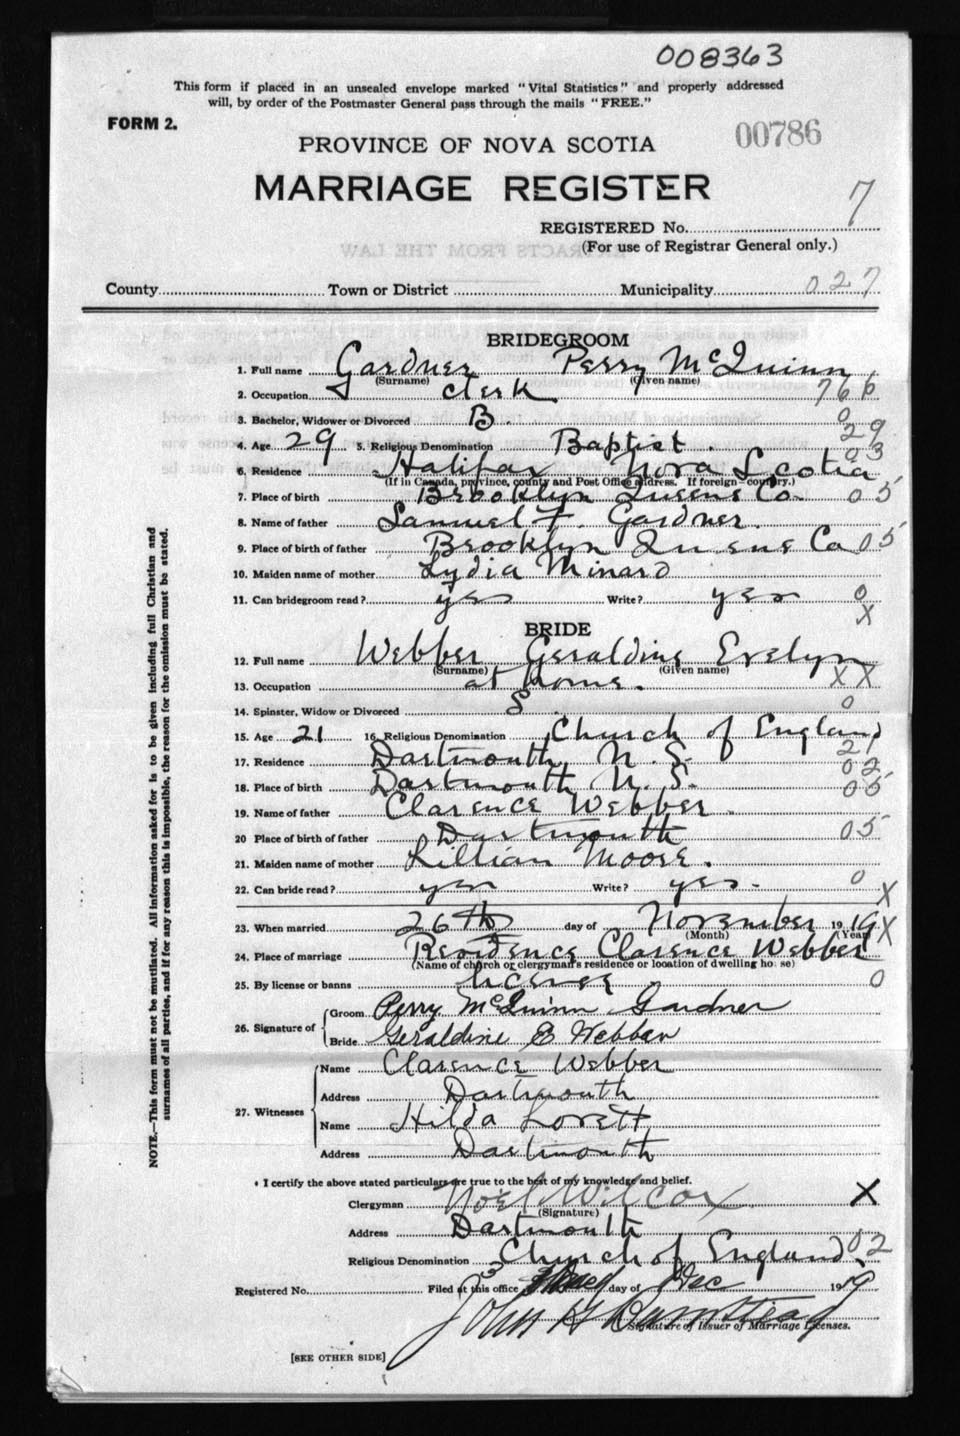 008363
This form if placed in an unsealed envelope marked "Vital Statistics" and properly addressed
will, by order of the Postmaster General pass through the mails "FREE."
FORM 2.
00786
PROVINCE OF NOVA SCOTIA
MARRIAGE REGISTER
7
REGISTERED No.
(For use of Registrar General only.)
County Town or District Municipality 027
BRIDEGROOM
1. Full name Gardner Perry McQuinn
(Surname) (Given name)
2. Occupation clerk 766
3. Bachelor, Widower or Divorced B. 0
4. Age 29 5. Religious Denomination Baptist. 29
6. Residence Halifax Nova Scotia 03
(If in Canada, province, county and Post Office address. If foreign—country.)
7. Place of birth Brooklyn Queens Co. 05
8. Name of father Samuel F. Gardner.
9. Place of birth of father Brooklyn Queens Co 05
10. Maiden name of mother Lydia Minard
11. Can bridegroom read? yes Write? yes 0
X
BRIDE
12. Full name Webber Geraldine Evelyn
(Surname) (Given name)
13. Occupation at home. XX
14. Spinster, Widow or Divorced S 0
15. Age 21 16. Religious Denomination Church of England
21
17. Residence Dartmouth N.S. 02
18. Place of birth Dartmouth N.S. 05
19. Name of father Clarence Webber.
20 Place of birth of father Dartmouth 05
21. Maiden name of mother Lillian Moore.
22. Can bride read? yes Write? yes. 0
X
23. When married 26th day of November 1919 X
(Month) (Year)
24. Place of marriage Residence Clarence Webber
(Name of church or clergyman's residence or location of dwelling house)
25. By license or banns license 0
26. Signature of Groom Perry McQuinn Gardner
Bride Geraldine E Webber
27. Witnesses Name Clarence Webber
Address Dartmouth
Name Hilda Lovett
Address Dartmouth
I certify the above stated particulars are true to the best of my knowledge and belief.
Clergyman Noel Wilcox X
(Signature)
Address Dartmouth
Religious Denomination Church of England. 02
Registered No. Filed at this office 3 day of Dec 1919
John H Bamstead
Signature of Issuer of Marriage Licenses.
[SEE OTHER SIDE]
NOTE.—This form must not be mutilated. All information asked for is to be given including full Christian and
surnames of all parties, and if for any reason this is impossible, the reason for the omission must be stated.